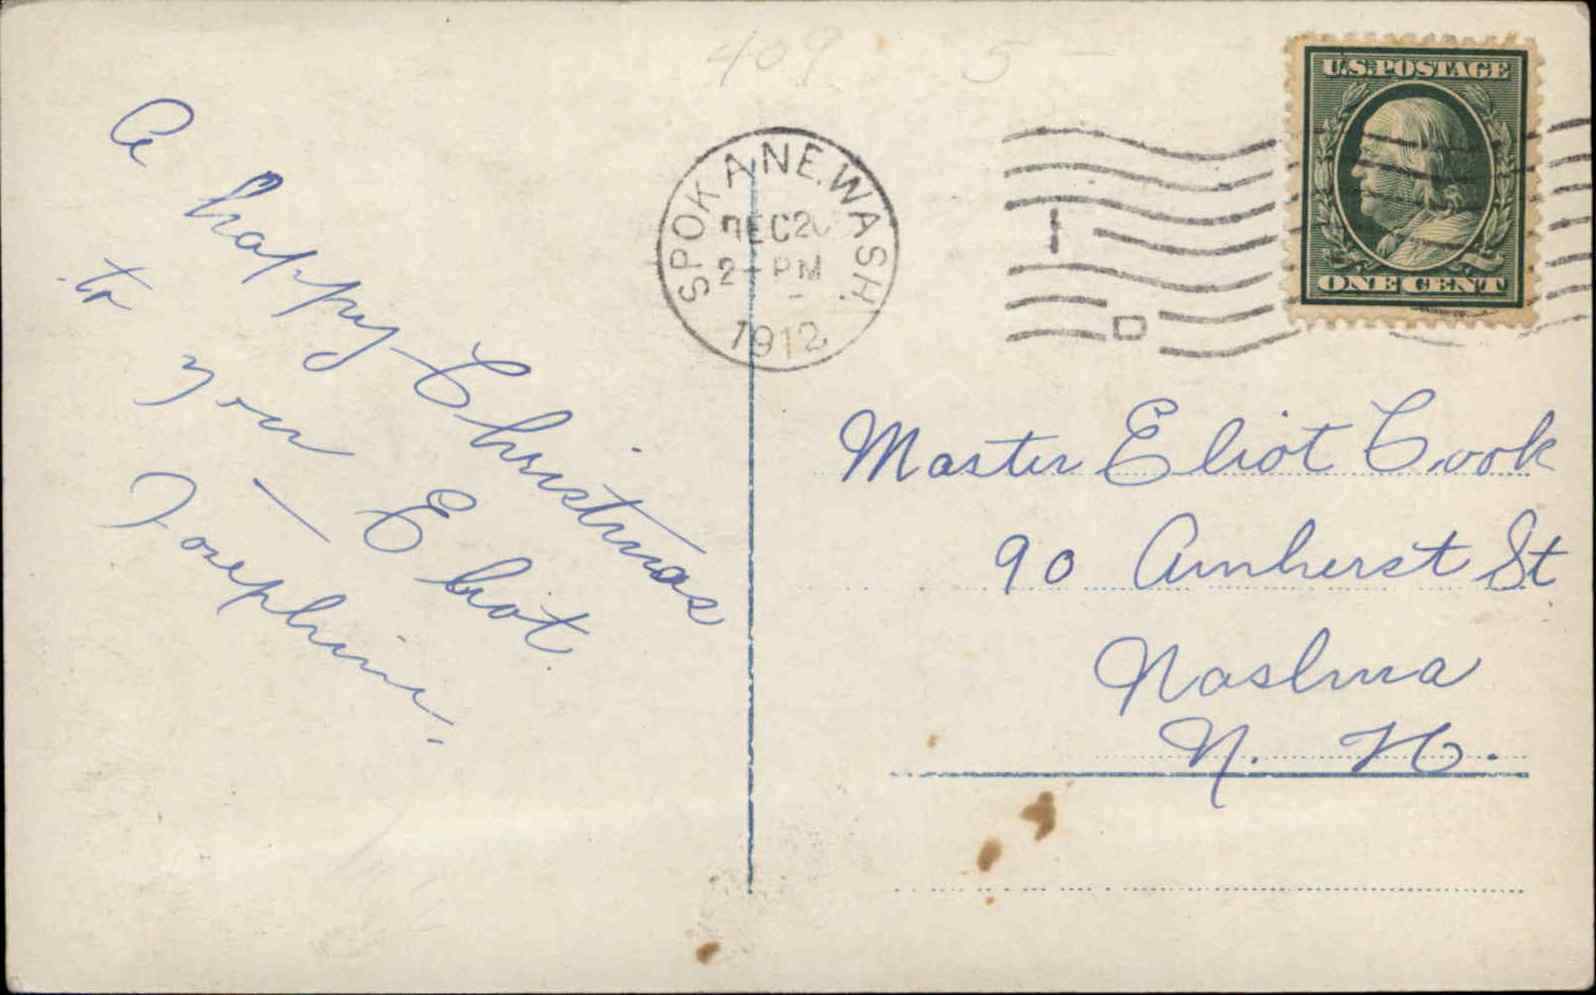 409 5-
A
happy Christmas
to
you - Eliot
Josephine.
SPOKANE, WASH.
DEC 20
2 - PM
1912
1
D
U.S. POSTAGE
ONE CENT
Master Eliot Cook
90 Amherst St
Nashua
N. H.